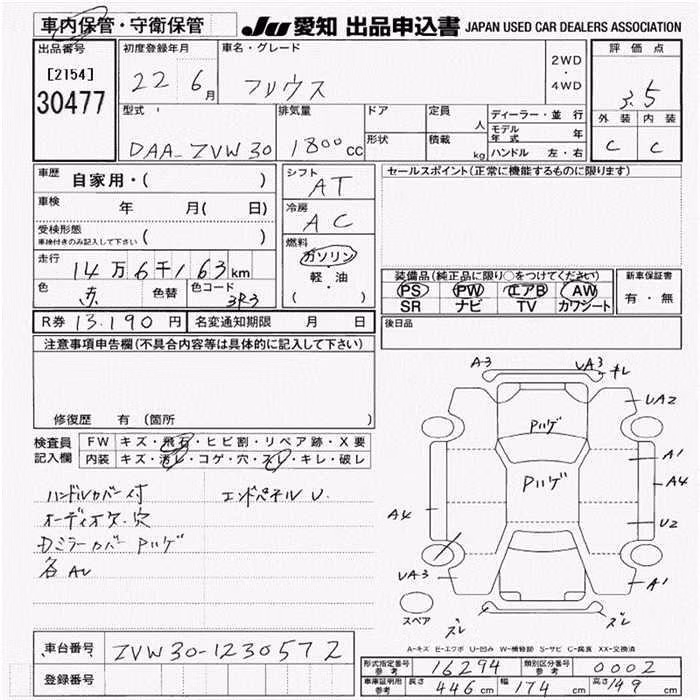 車内保管・守衛保管
JU 愛知 出品申込書 JAPAN USED CAR DEALERS ASSOCIATION
出品番号
[2154]
30477
初度登録年月
22 6月
車名・グレード
プリウス
2WD
・
4WD
評価点
3.5
外装 内装
C C
型式
DAA-ZVW30
排気量
1800cc
ドア
形状
定員
人
積載
kg
ディーラー・並行
モデル年式 年
ハンドル 左・右
車歴
自家用・( )
車検
年 月( 日)
受検形態
車検付きのみ記入して下さい ( )
走行
14万6千163km
色
赤
色替
色コード
3R3
シフト
AT
冷房
AC
燃料
ガソリン
・
軽・油
( )
セールスポイント(正常に機能するものに限ります)
装備品(純正品に限り○をつけてください)
PS PW エアB AW
SR ナビ TV カワシート
新車保証書
有・無
R券 13,190円
名変通知期限 月 日
後日品
注意事項申告欄(不具合内容等は具体的に記入して下さい)
修復歴 有(箇所 )
検査員記入欄
FW キズ・飛石・ヒビ割・リペア跡・X要
内装 キズ・汚レ・コゲ・穴・スレ・キレ・破レ
ハンドルカバー付
オーディオ欠・穴
Dミラーカバー Pハゲ
各AU
エンドパネルU
A3
UA3
キレ
UA2
Pハゲ
Pハゲ
A1
A4
A4
U2
UA3
A1
スペア
ズレ
ズレ
A-キズ E-エクボ U-凹み W-補修跡 S-サビ C-腐食 XX-交換済
車台番号 ZVW30-1230572
登録番号
形式指定番号参考 16294
類別区分番号参考 0002
車庫証明用参考 長さ 446cm 幅 174cm 高さ 149cm